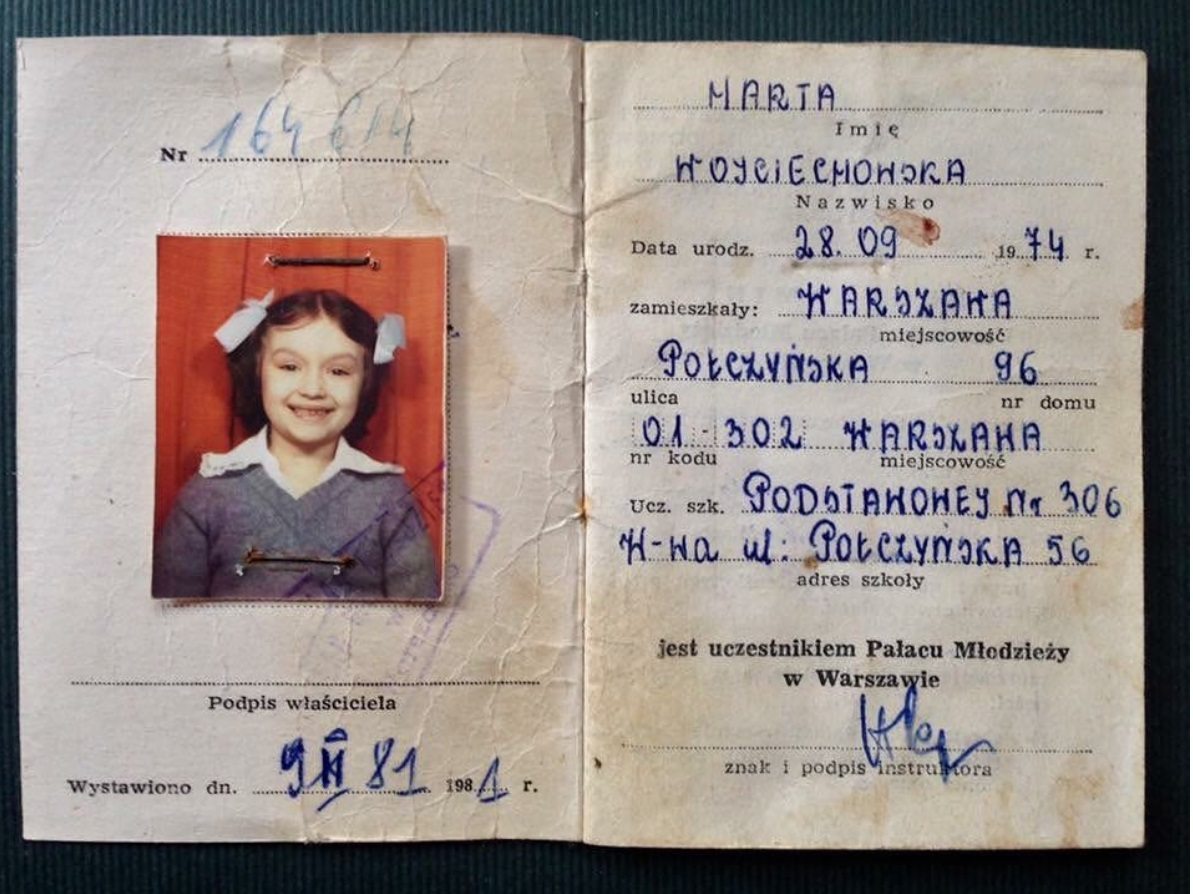 Nr 164614
Podpis właściciela
Wystawiono dn. 9 II 81 1981 r.
MARTA
Imię
WOJCIECHOWSKA
Nazwisko
Data urodz. 28.09 1974 r.
zamieszkały: WARSZAWA
miejscowość
POŁCZYŃSKA 96
ulica nr domu
01-302 WARSZAWA
nr kodu miejscowość
Ucz. szk. PODSTAWOWEJ Nr 306
W-wa ul: POŁCZYŃSKA 56
adres szkoły
jest uczestnikiem Pałacu Młodzieży
w Warszawie
znak i podpis instruktora